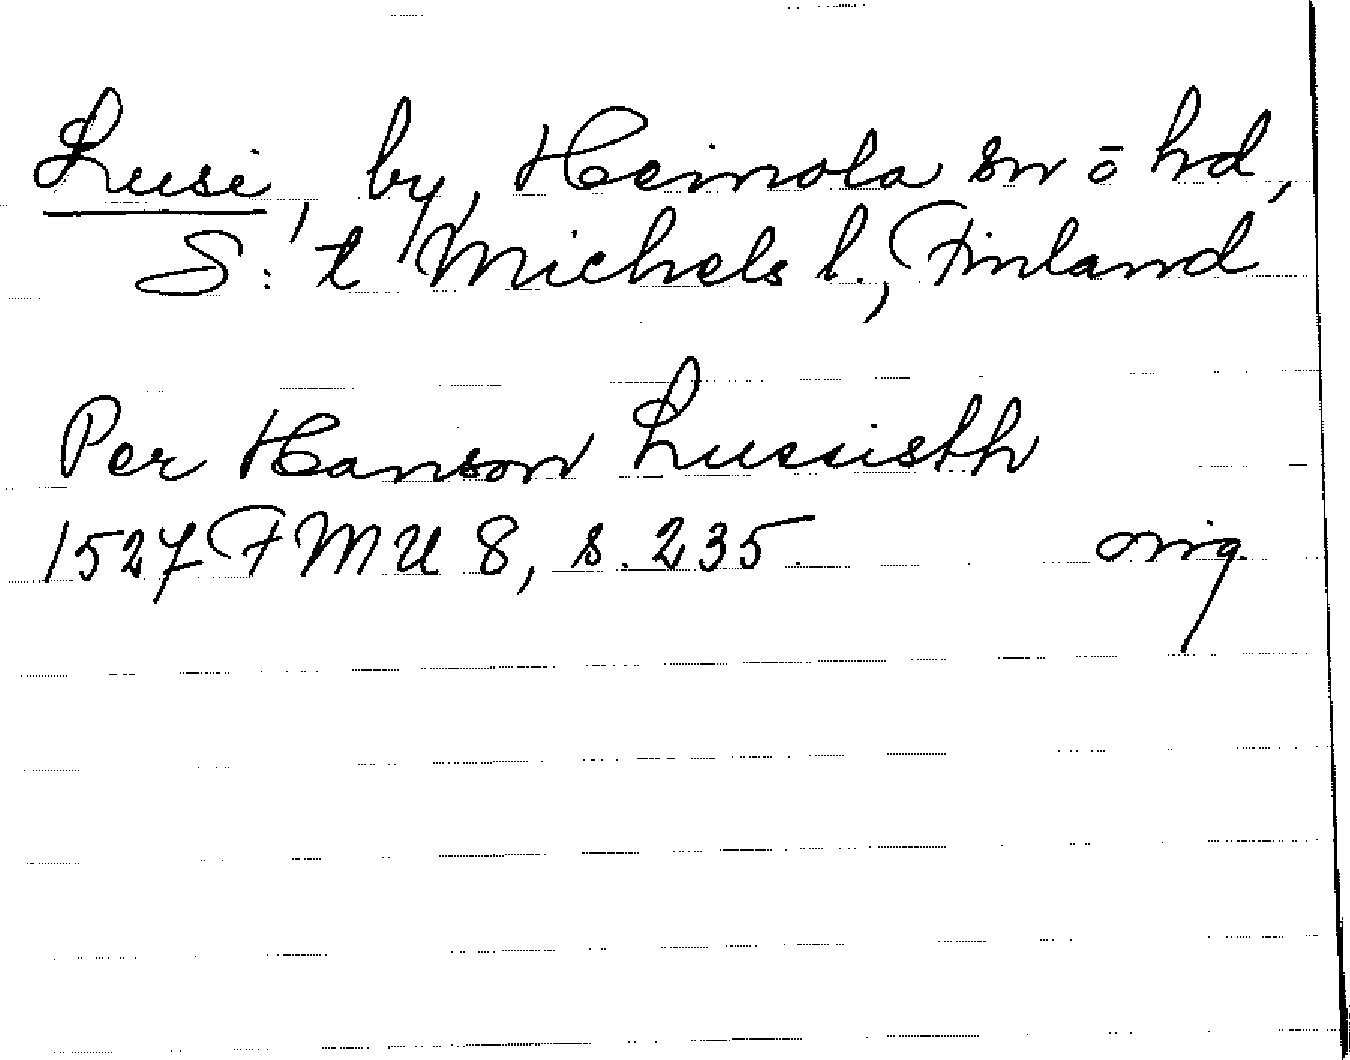 Lusi, by, Heinola sn o hd,
S:t Michels l., Finland
Per Hanson Lussisth
1527 FMU 8, s. 235. orig.